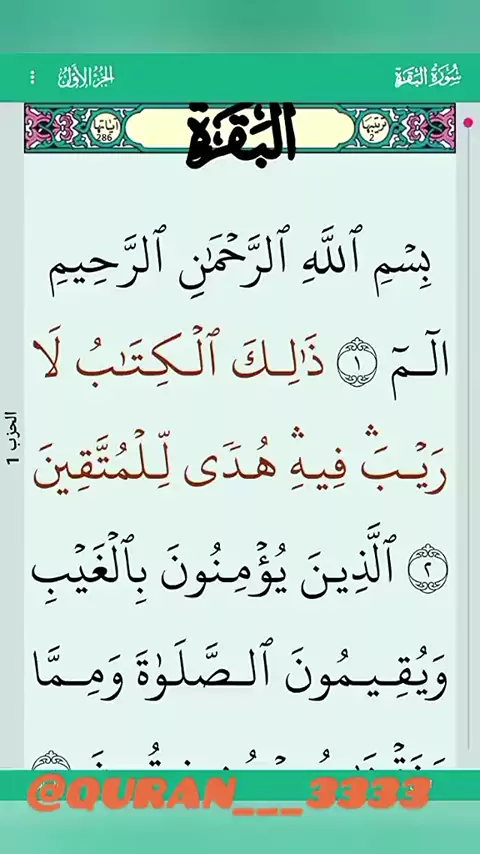 سُورَةُ البَقَرَةِ
الجُزْءُ الأَوَّلُ
ترتيبها
2
البَقَرَة
اياتها
286
بِسْمِ ٱللَّهِ ٱلرَّحْمَٰنِ ٱلرَّحِيمِ
الٓمٓ ١ ذَٰلِكَ ٱلْكِتَٰبُ لَا
رَيْبَ ۛ فِيهِ ۛ هُدًى لِّلْمُتَّقِينَ
٢ ٱلَّذِينَ يُؤْمِنُونَ بِٱلْغَيْبِ
وَيُقِيمُونَ ٱلصَّلَوٰةَ وَمِمَّا
الحزب 1
@QURAN___3333